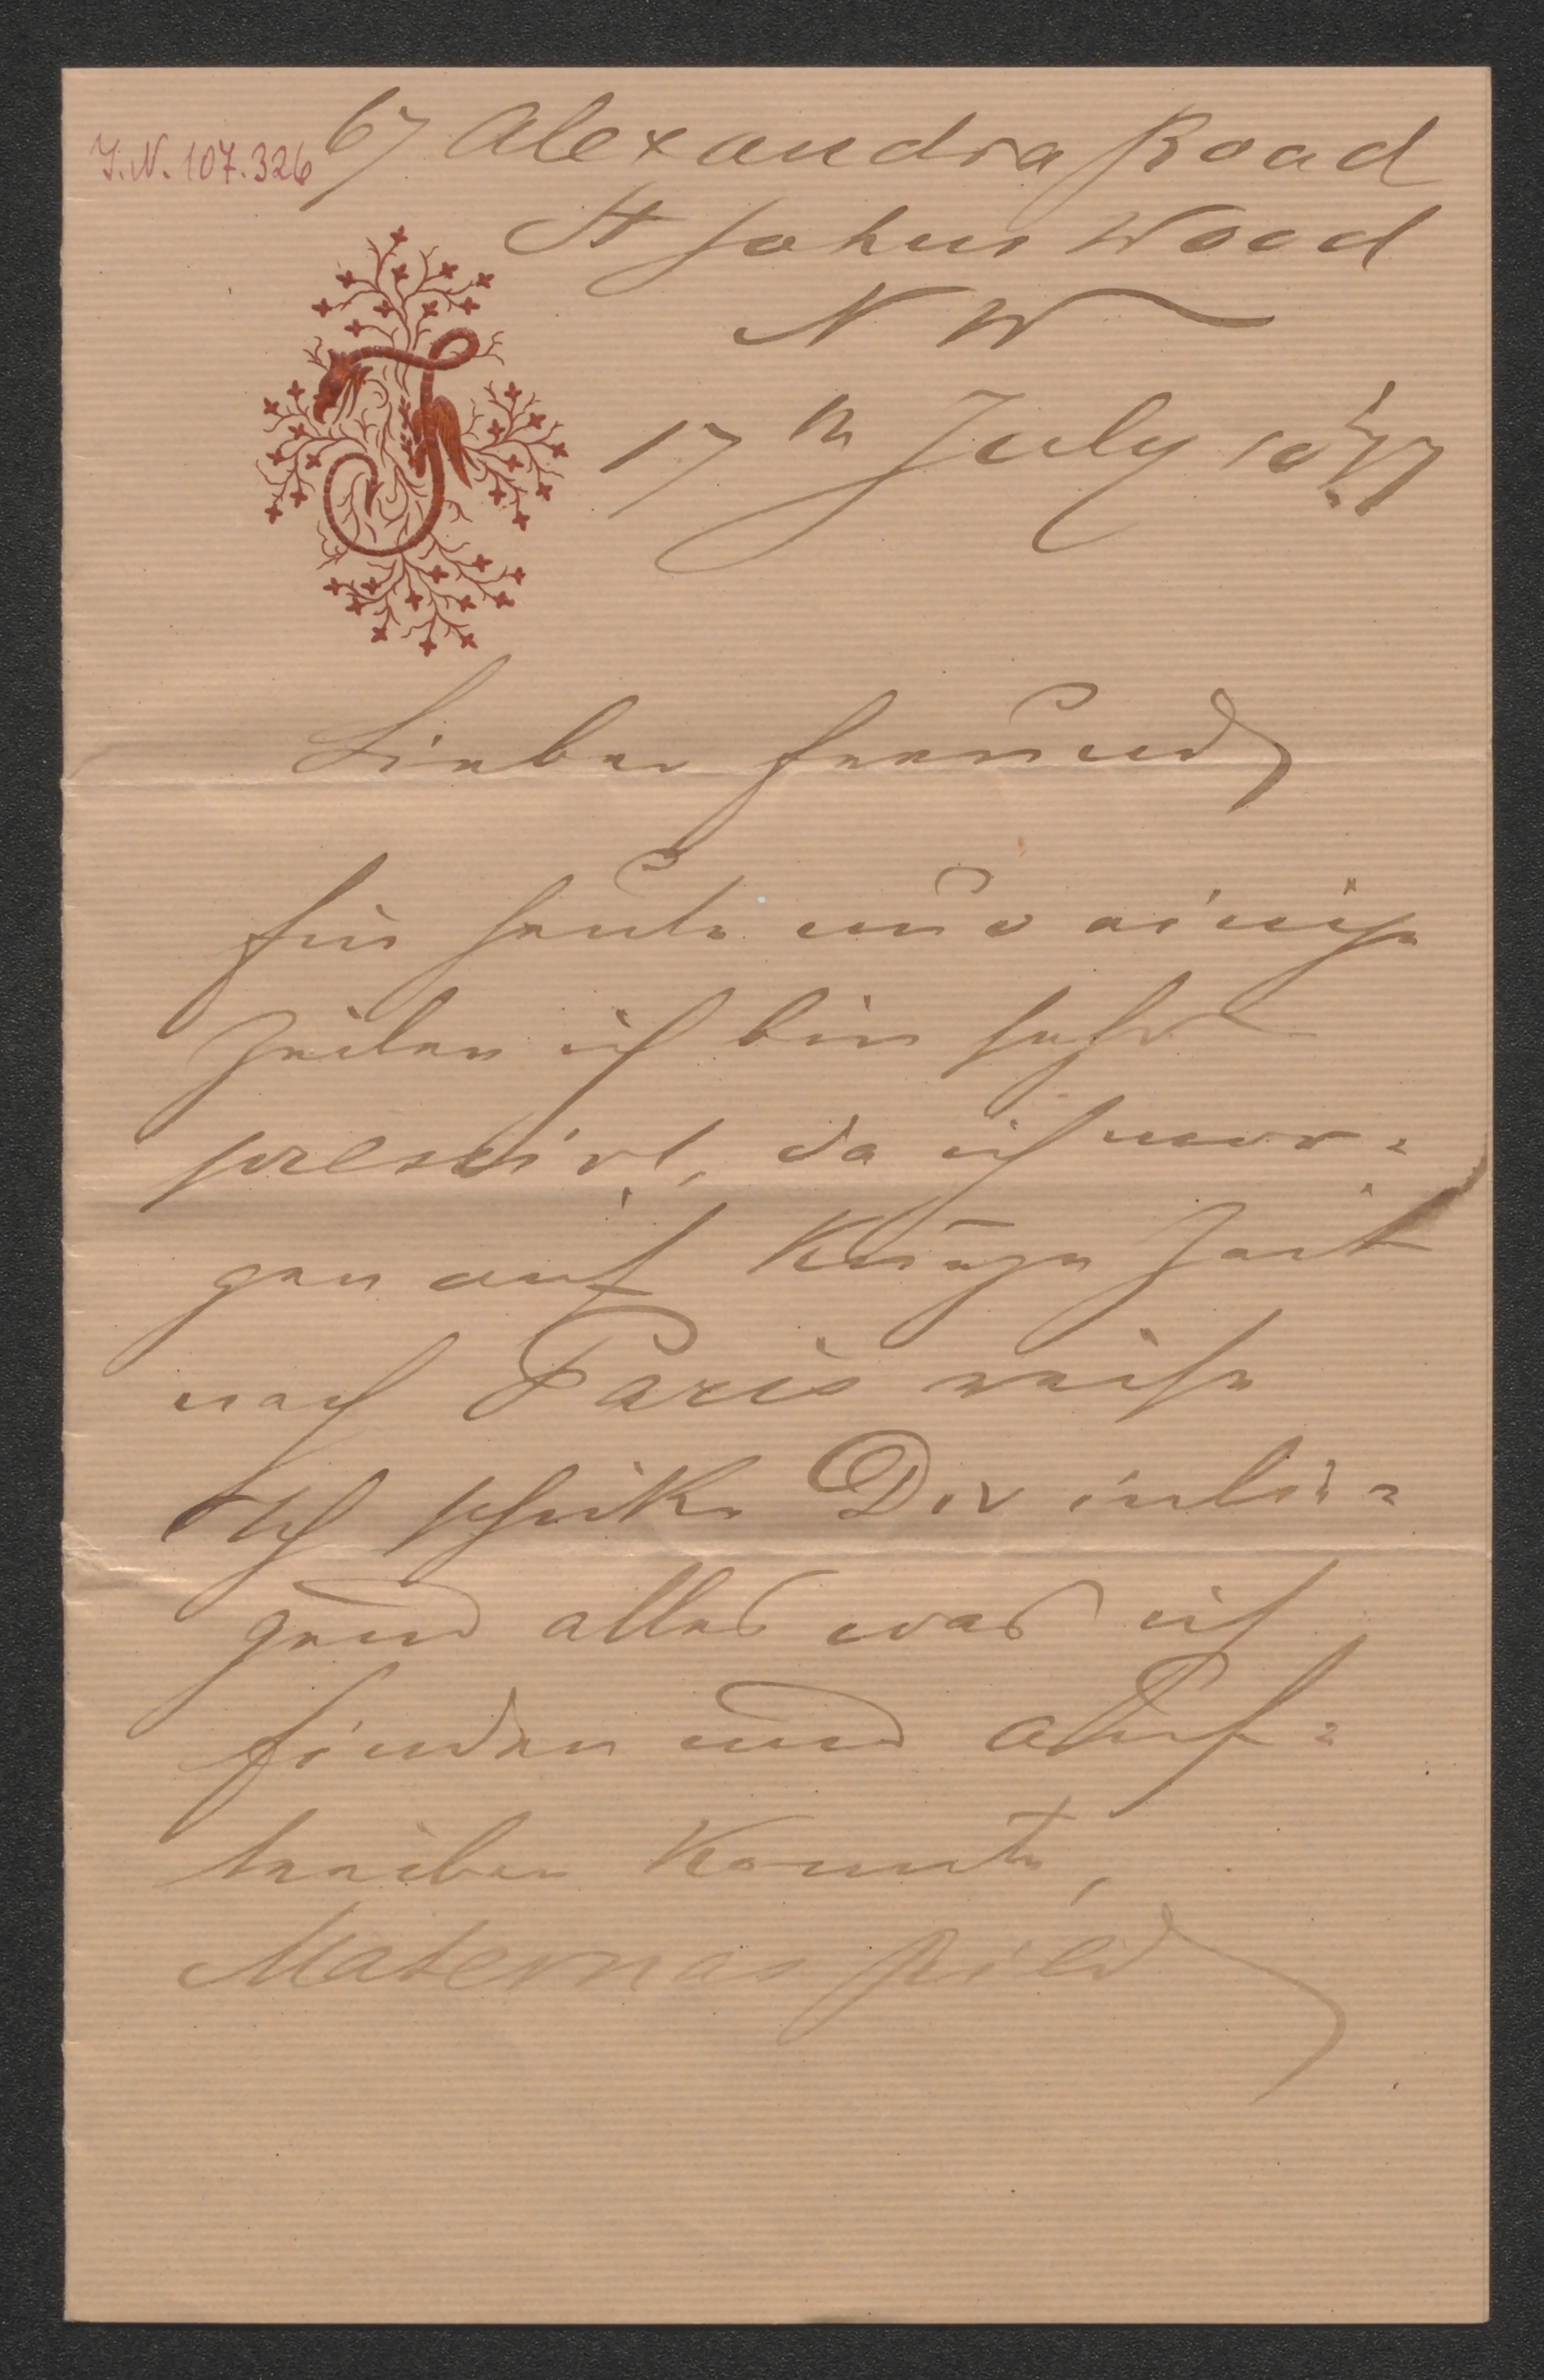 J.N. 107.326
67 Alexandra Road
St Johns Wood
N W
17th July 1877
Lieber Freund
für heute nur einige
Zeilen ich bin sehr
pressirt, da ich mor=
gen auf kurze Zeit
nach Paris reise
Ich schike Dir inlie=
gend alles was ich
finden und auf=
treiben konnte,
Maternas